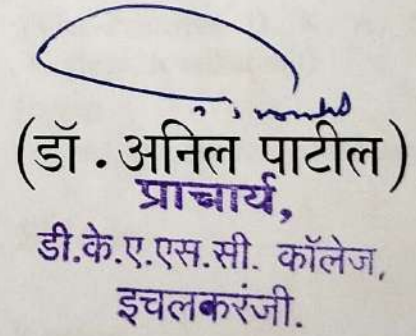 (डॉ . अनिल पाटील)
प्राचार्य,
डी.के.ए.एस.सी. कॉलेज,
इचलकरंजी.